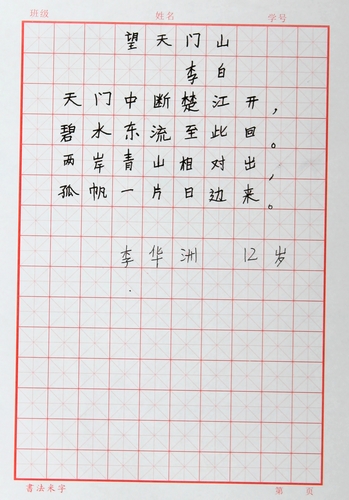 班级 姓名 学号
望天门山
李白
天门中断楚江开，
碧水东流至此回。
两岸青山相对出，
孤帆一片日边来。
李华洲 12岁
书法米字 第 页